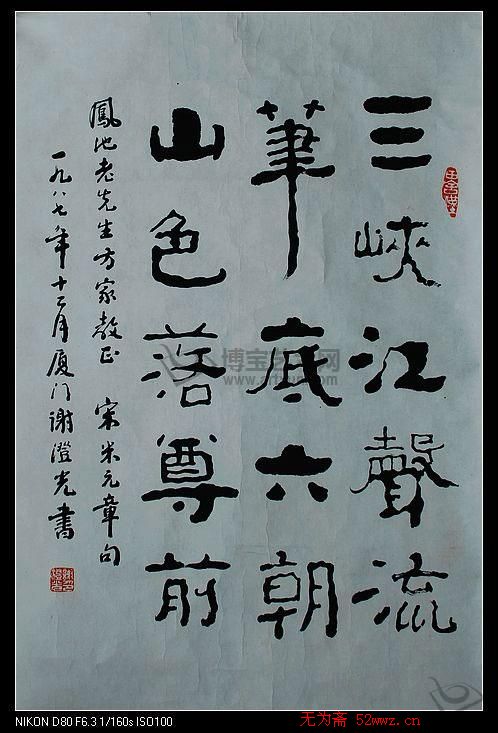 三峽江聲流
筆底六朝
山色落尊前
鳳池老先生方家教正 宋米元章句
一九八七年十二月厦门谢澄光書
博宝 网
NIKON D80 F6.3 1/160s ISO100
无为斋 52wwz.cn